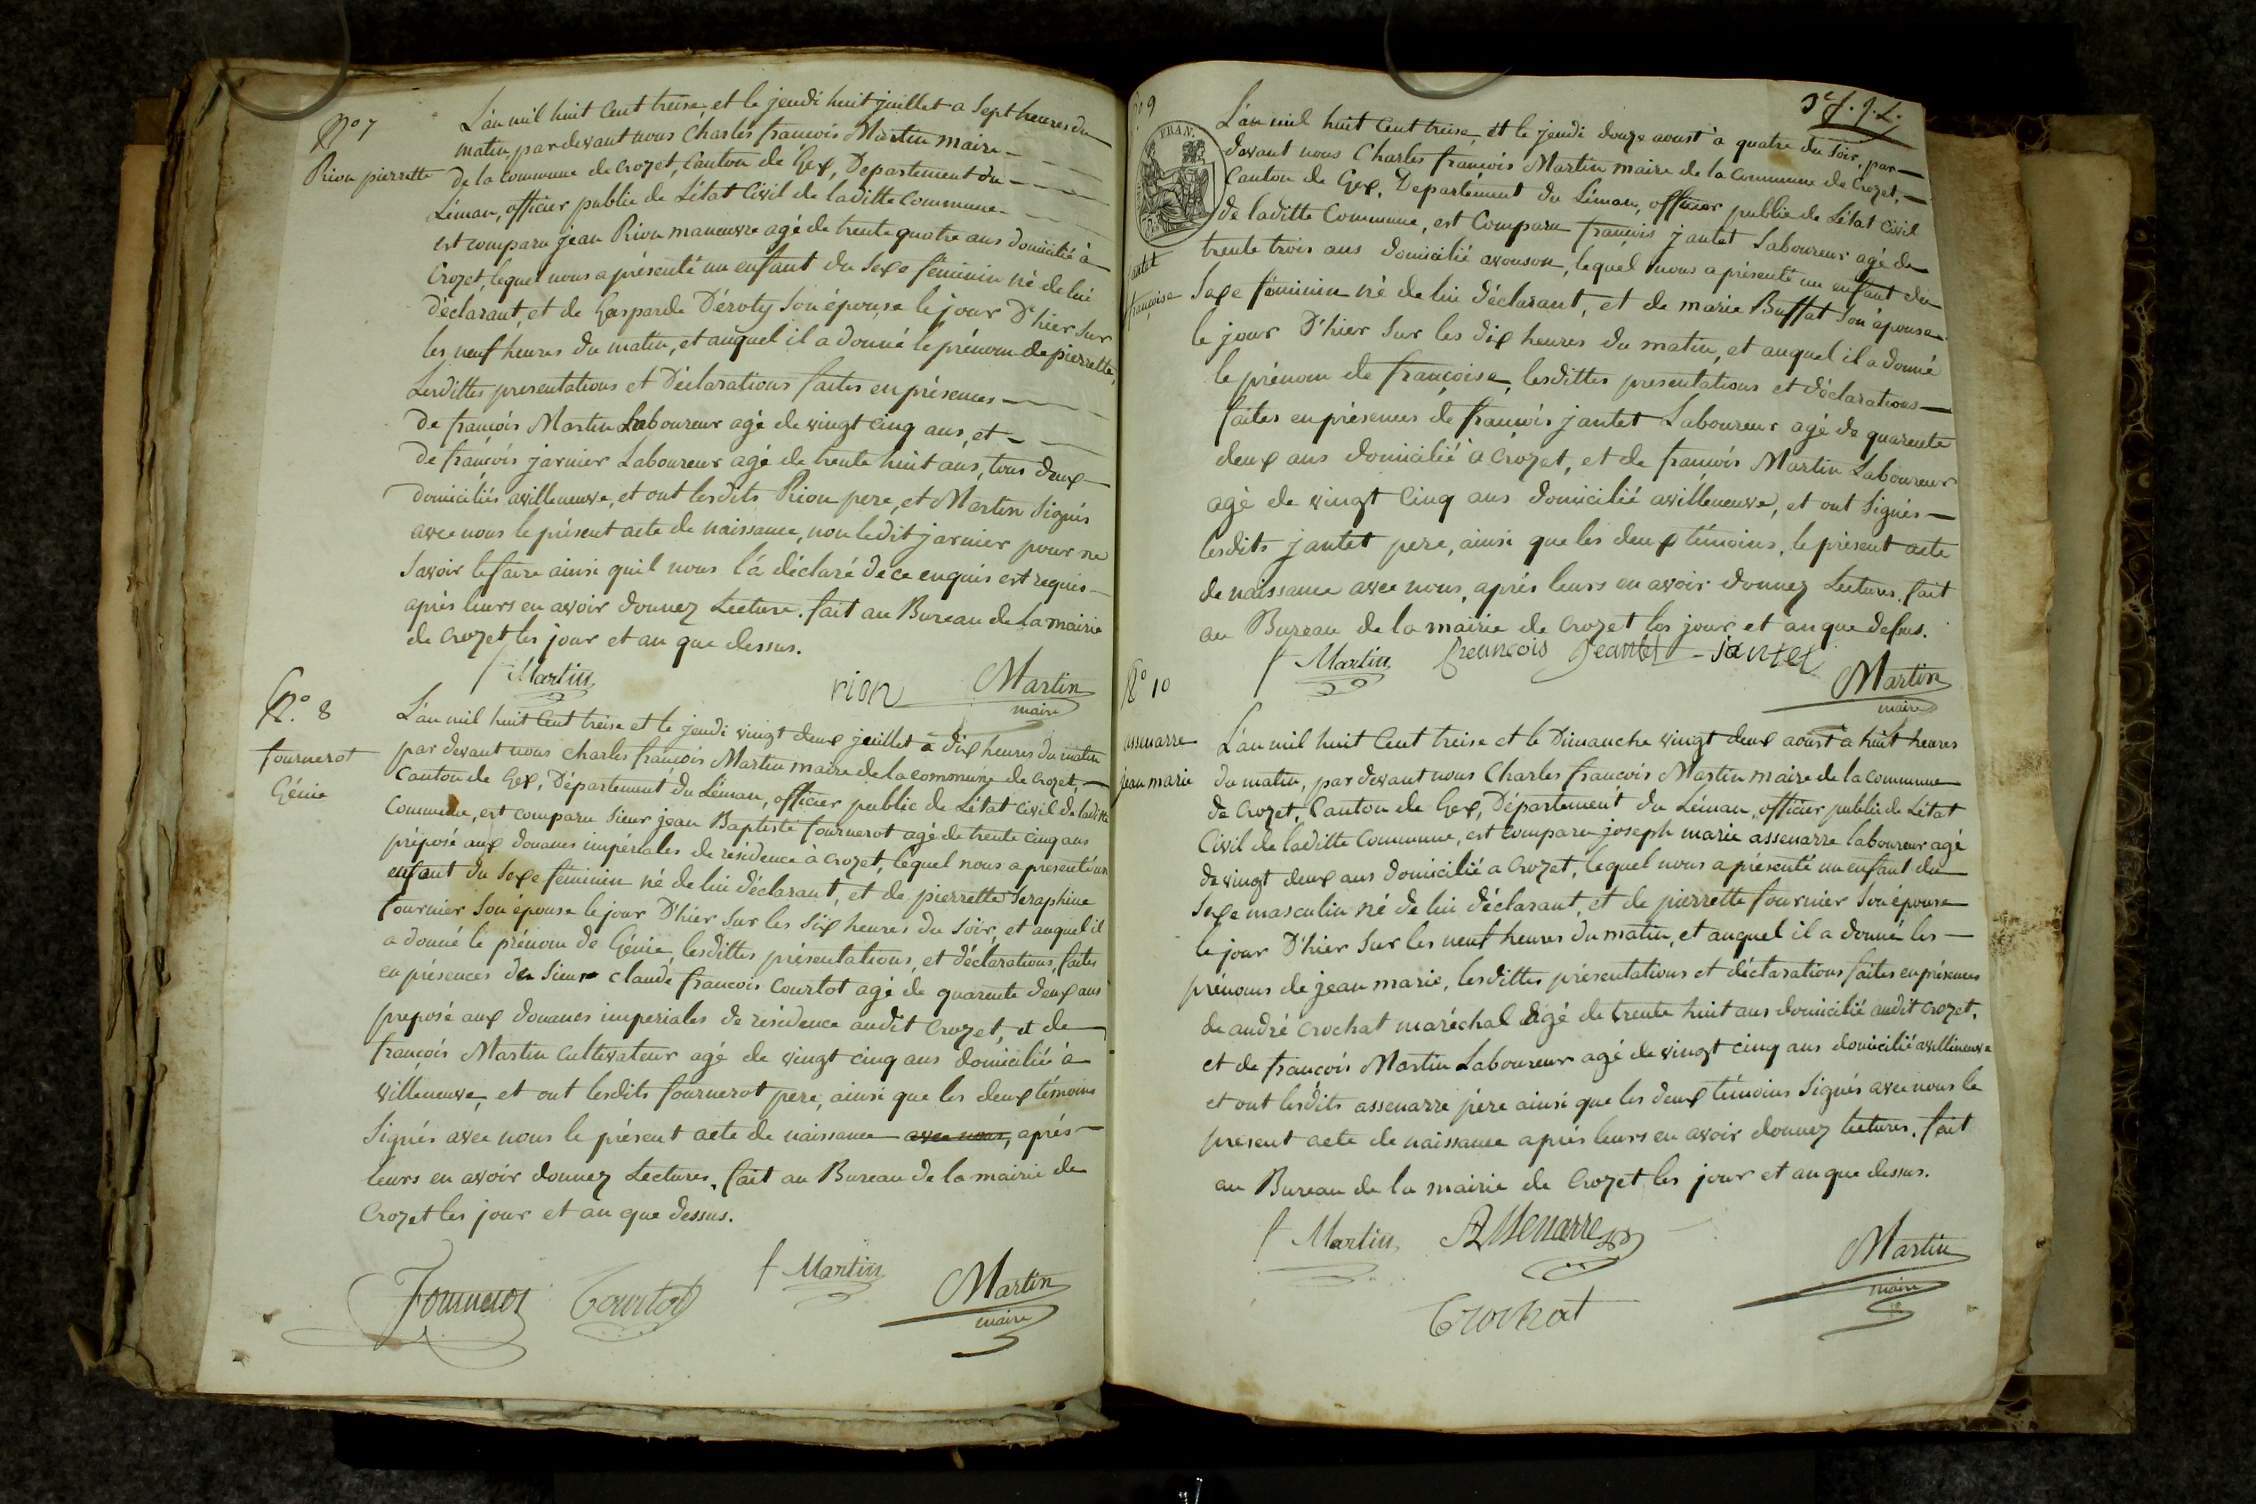 N° 7
Rion pierrette
L'an mil huit Cent treise et le jeudi huit juillet a Sept heures du
matin par devant nous Charles francois Martin maire
de la Commune de Crozet, Canton de Gex, Departement du
Léman, officier public de L'état Civil de laditte Commune
est comparu jean Rion maneuvre agé de trente quatre ans domicilié à
Crozet, lequel nous a présenté un enfant du Sexe féminin né de lui
déclarant, et de Gasparde Déroty Son épouse le jour D'hier Sur
les neuf heures du matin, et auquel il a donné le prénom de pierrette,
Lesdittes presentations et Déclarations faites en présences
de francois Martin Laboureur agé de vingt Cinq ans, et
de francois jarnier Laboureur agé de trente huit ans, tous deux
domiciliés avilleneuve, et ont lesdits Rion pere, et Martin Signés
avec nous le présent acte de naissance, non ledit jarnier pour ne
Savoir le faire ainsi quil nous l'a déclaré de ce enquis est requis
après leurs en avoir donnez Lecture. fait au Bureau de La mairie
de Crozet les jour et an que dessus.
f Martin rion Martin
maire
N° 8
fournerot
Génie
L'an mil huit Cent treise et le jeudi vingt deux juillet à dix heures du matin
par devant nous Charles francois Martin maire de la commune de Crozet,
Canton de Gex, Département du Léman, officier public de L'état Civil de laditte
Commune, est comparu Sieur jean Baptiste fournerot agé de trente cinq ans
préposé aux douanes impériales de résidence à Crozet, lequel nous a presenté un
enfant du Sexe féminin né de lui déclarant, et de pierrette Seraphine
fournier Son épouse le jour D'hier Sur les Six heures du Soir, et auquel il
a donné le prénom de Génie, lesdittes présentations, et déclarations, faites
en présences de Sieur claude francois Courtot agé de quarente deux ans
preposé aux douanes imperiales de résidence audit Crozet, et de
francois Martin Cultivateur agé de vingt cinq ans domicilié à
villeneuve, et ont lesdits fournerot pere, ainsi que les deux témoins
Signés avec nous le présent acte de naissance avec nous, après
leurs en avoir donnez Lectures. fait au Bureau de la mairie de
Crozet les jour et an que dessus.
Fournerot Courtot f Martin Martin
maire
3e f. J. L.
N° 9
FRAN.
jantet
françoise
L'an mil huit Cent treise et le jeudi douze aoust à quatre du Soir, par
devant nous Charles francois Martin maire de la Commune de Crozet,
Canton de Gex, Departement du Léman, officier public de L'état Civil
de laditte Commune, est Comparu francois jantet Laboureur agé de
trente trois ans domicilié avouson, lequel nous a présenté un enfant du
Sexe féminin né de lui déclarant, et de marie Buffat Son épouse
le jour D'hier Sur les dix heures du matin, et auquel il a donné
le prénom de françoise, lesdittes presentations et déclarations
faites en présences de francois jantet Laboureur agé de quarente
deux ans domicilié à Crozet, et de francois Martin Laboureur
agé de vingt Cinq ans domicilié avilleneuve, et ont Signés
lesdits jantet pere, ainsi que les deux témoins, le présent acte
de naissance avec nous, après leurs en avoir donnez Lectures. fait
au Bureau de la mairie de Crozet les jour et an que dessus.
f Martin francois Jeantet jantet Martin
maire
N° 10
assenarre
jean marie
L'an mil huit Cent treise et le Dimanche vingt deux aoust à huit heures
du matin, par devant nous Charles francois Martin maire de la commune
de Crozet, Canton de Gex, Département du Léman, officier public de L'état
Civil de laditte Commune, est comparu joseph marie assenarre laboureur agé
de vingt deux ans domicilié a Crozet, lequel nous a présenté un enfant du
Sexe masculin né de lui déclarant, et de pierrette fournier Son épouse
le jour D'hier Sur les neuf heures du matin, et auquel il a donné les
prénoms de jean marie, lesdittes présentations et déclarations faites en présences
de andré Crochat maréchal agé de trente huit ans domicilié audit Crozet,
et de francois Martin Laboureur agé de vingt cinq ans domicilié avilleneuve
et ont lesdits assenarre pere ainsi que les deux témoins Signés avec nous le
present acte de naissance après leurs en avoir donnez lectures. fait
au Bureau de la mairie de Crozet les jour et an que dessus.
f Martin Assenarre Martin
maire
Crochat